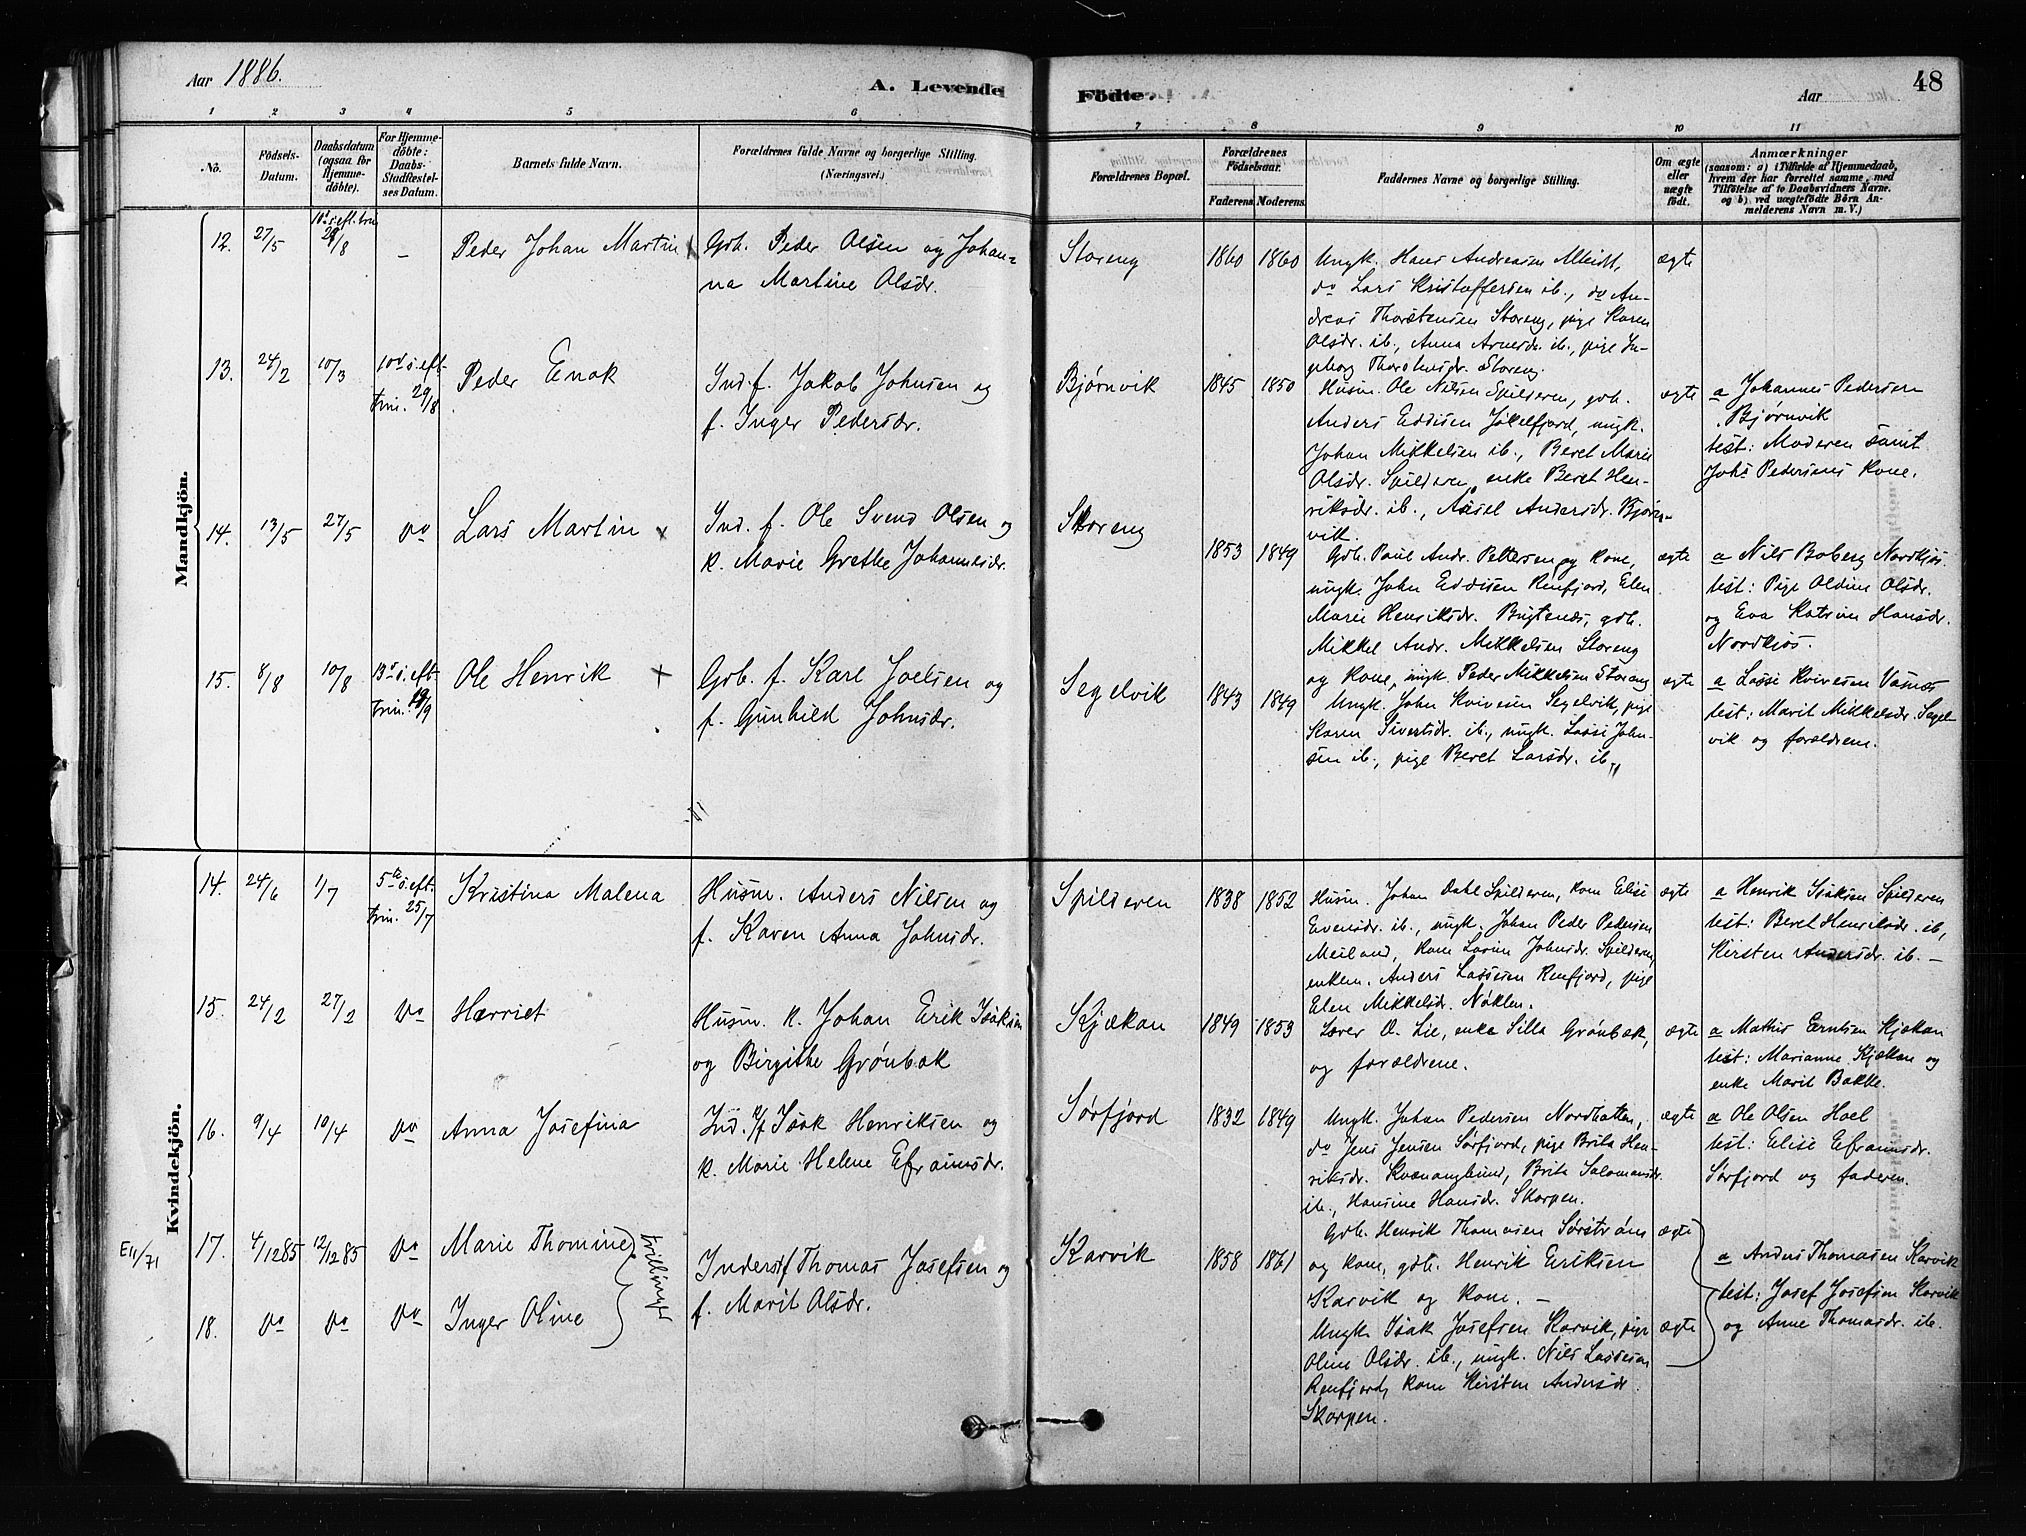 Aar 1886.
A. Levende Födte.
Aar
48
1 2 3 4 5 6 7 8 9 10 11
No.
Födsels-Datum.
Daabsdatum (ogsaa for Hjemmedöbte).
For Hjemmedöbte: Daabs-Stadfæstelses Datum.
Barnets fulde Navn.
Forældrenes fulde Navne og borgerlige Stilling. (Næringsvei.)
Forældrenes Bopæl.
Forældrenes Födselsaar.
Faderens Moderens
Faddernes Navne og borgerlige Stilling.
Om ægte eller uægte födt.
Anmærkninger
(saasom: a) i Tilfælde af Hjemmedaab,
hvem der har forrettet samme, med
Tilföielse af to Daabsvidners Navne.
og b) ved uægtefödte Börn An-
melderens Navn m. V.)
Mandkjön.
12. 27/5 10d s. eft. trin 29/8 - Peder Johan Martin
Gdb. Peder Olsen og Johan=
na Martine Olsdr.
Storeng 1860 1860
Ungk. Hans Andreasen Alteidt,
do Lars Kristoffersen ib., do An-
dreas Thorstensen Storeng, pige Karen
Olsdr. ib., Anna Arnesdr. ib., pige In-
geborg Storeng.
ægte
13. 24/2 10/3 10d s. eft. trin. 29/8 Peder Enok
Ind. f. Jakob Johnsen og
f. Inger Pedersdr.
Bjørnvik 1845 1850
Husm. Ole Nilsen Spilderen, gdb.
Anders Eddisen Jøkelfjord, ungk.
Johan Mikkelsen ib., Beret Marie
Olsdr. Spilderen, enke Beret Hen-
riksdr. ib., Andersdr. Bjørn-
vik.
ægte
a Johannes Pedersen
Bjørnvik
test: Moderen samt
Johs Pedersens kone.
14. 13/5 27/5 do Lars Martin x
Ind. f. Ole Svend Olsen og
k. Marie Grethe Johannesdr.
Storeng 1853 1849
Gdb. Paul Andr. Pettersen og kone,
ungk. John Eddisen Renfjord, Elen
Marie Henriksdr. Bugtenes, gdb.
Mikkel Andr. Mikkelsen Storeng
og kone, ungk. Peder Mikkelsen Storeng
ægte
a Nils Boberg Nordkjos.
test: Pige Oldine Olsdr.
og Eva Katrine Hansdr.
Nordkjos.
15. 8/8 10/8 13d s. eft. trin. 19/9 Ole Henrik x
Gdb. f. Karl Joelsen og
f. Gunhild Johnsdr.
Segelvik 1843 1849
Ungk. John Kvivesen Segelvik, pige
Karen Sivertsdr. ib., ungk. Lassi John-
sen ib., pige Beret Larsdr. ib.,
ægte
a Lasse Kvivesen Vasnes
test: Marit Mikkelsdr. Segel-
vik og forældrene.
Kvindekjön.
14. 24/6 1/7 5te s. eft. trin. 25/7 Kristina Malena
Husm. Anders Nilsen og
f. Karen Anna Johnsdr.
Spilderen 1838 1852
Husm. Johan Dahl Spilderen, kone Elise
Evensdr. ib., ungk. Johan Peder Pedersen
Meiland, kone Lovise Johnsdr. Spilderen,
enkem. Anders Lassesen Renfjord, pige
Elen Mikkelsdr. Nøklen.
ægte
a Henrik Isaksen Spilderen
test: Beret Henriksdr. ib,
Kirsten Andersdr. ib. -
15. 24/2 27/2 do Harriet
Husm. k. Johan Erik Isaksen
og Birgithe Grønbak
Kjækan 1849 1853
Lærer O. Lie, enke Silla Grønbak,
og forældrene.
ægte
a Mathis Erntsen Kjækan
test: Marianne Kjækan og
enke Marit Bakke.
16. 9/4 10/4 do Anna Josefina
Ind. k/f Isak Henriksen og
k. Marie Helene Efraimsdr.
Sørfjord 1832 1849
Ungk. Johan Pedersen Nordbotten,
do Jens Jensen Sørfjord, pige Brita Hen-
riksdr. Kvænangbund, Brita Salomonsdr.
ib., Hansine Hansdr. Skorpen.
ægte
a Ole Olsen Hoel
test: Elise Efraimsdr.
Sørfjord og faderen.
E11/71 17. 4/12 85 12/12 85 do Marie Thomine
18. do do do Inger Oline
trillinger
Inderst f Thomas Josefsen og
f. Marit Olsdr.
Karvik 1858 1861
Gdb. Henrik Thomasen Sørstrøms
og kone, gdb. Henrik Eriksen
Karvik og kone. -
Ungk. Isak Josefsen Karvik, pige
Oline Olsdr. ib., ungk. Nils Lassesen
Renfjord, kone Kirsten Andersdr.
Skorpen.
ægte
ægte
a Anders Thomasen Karvik
test: Josef Josefsen Karvik
og Anne Thomasdr. ib.